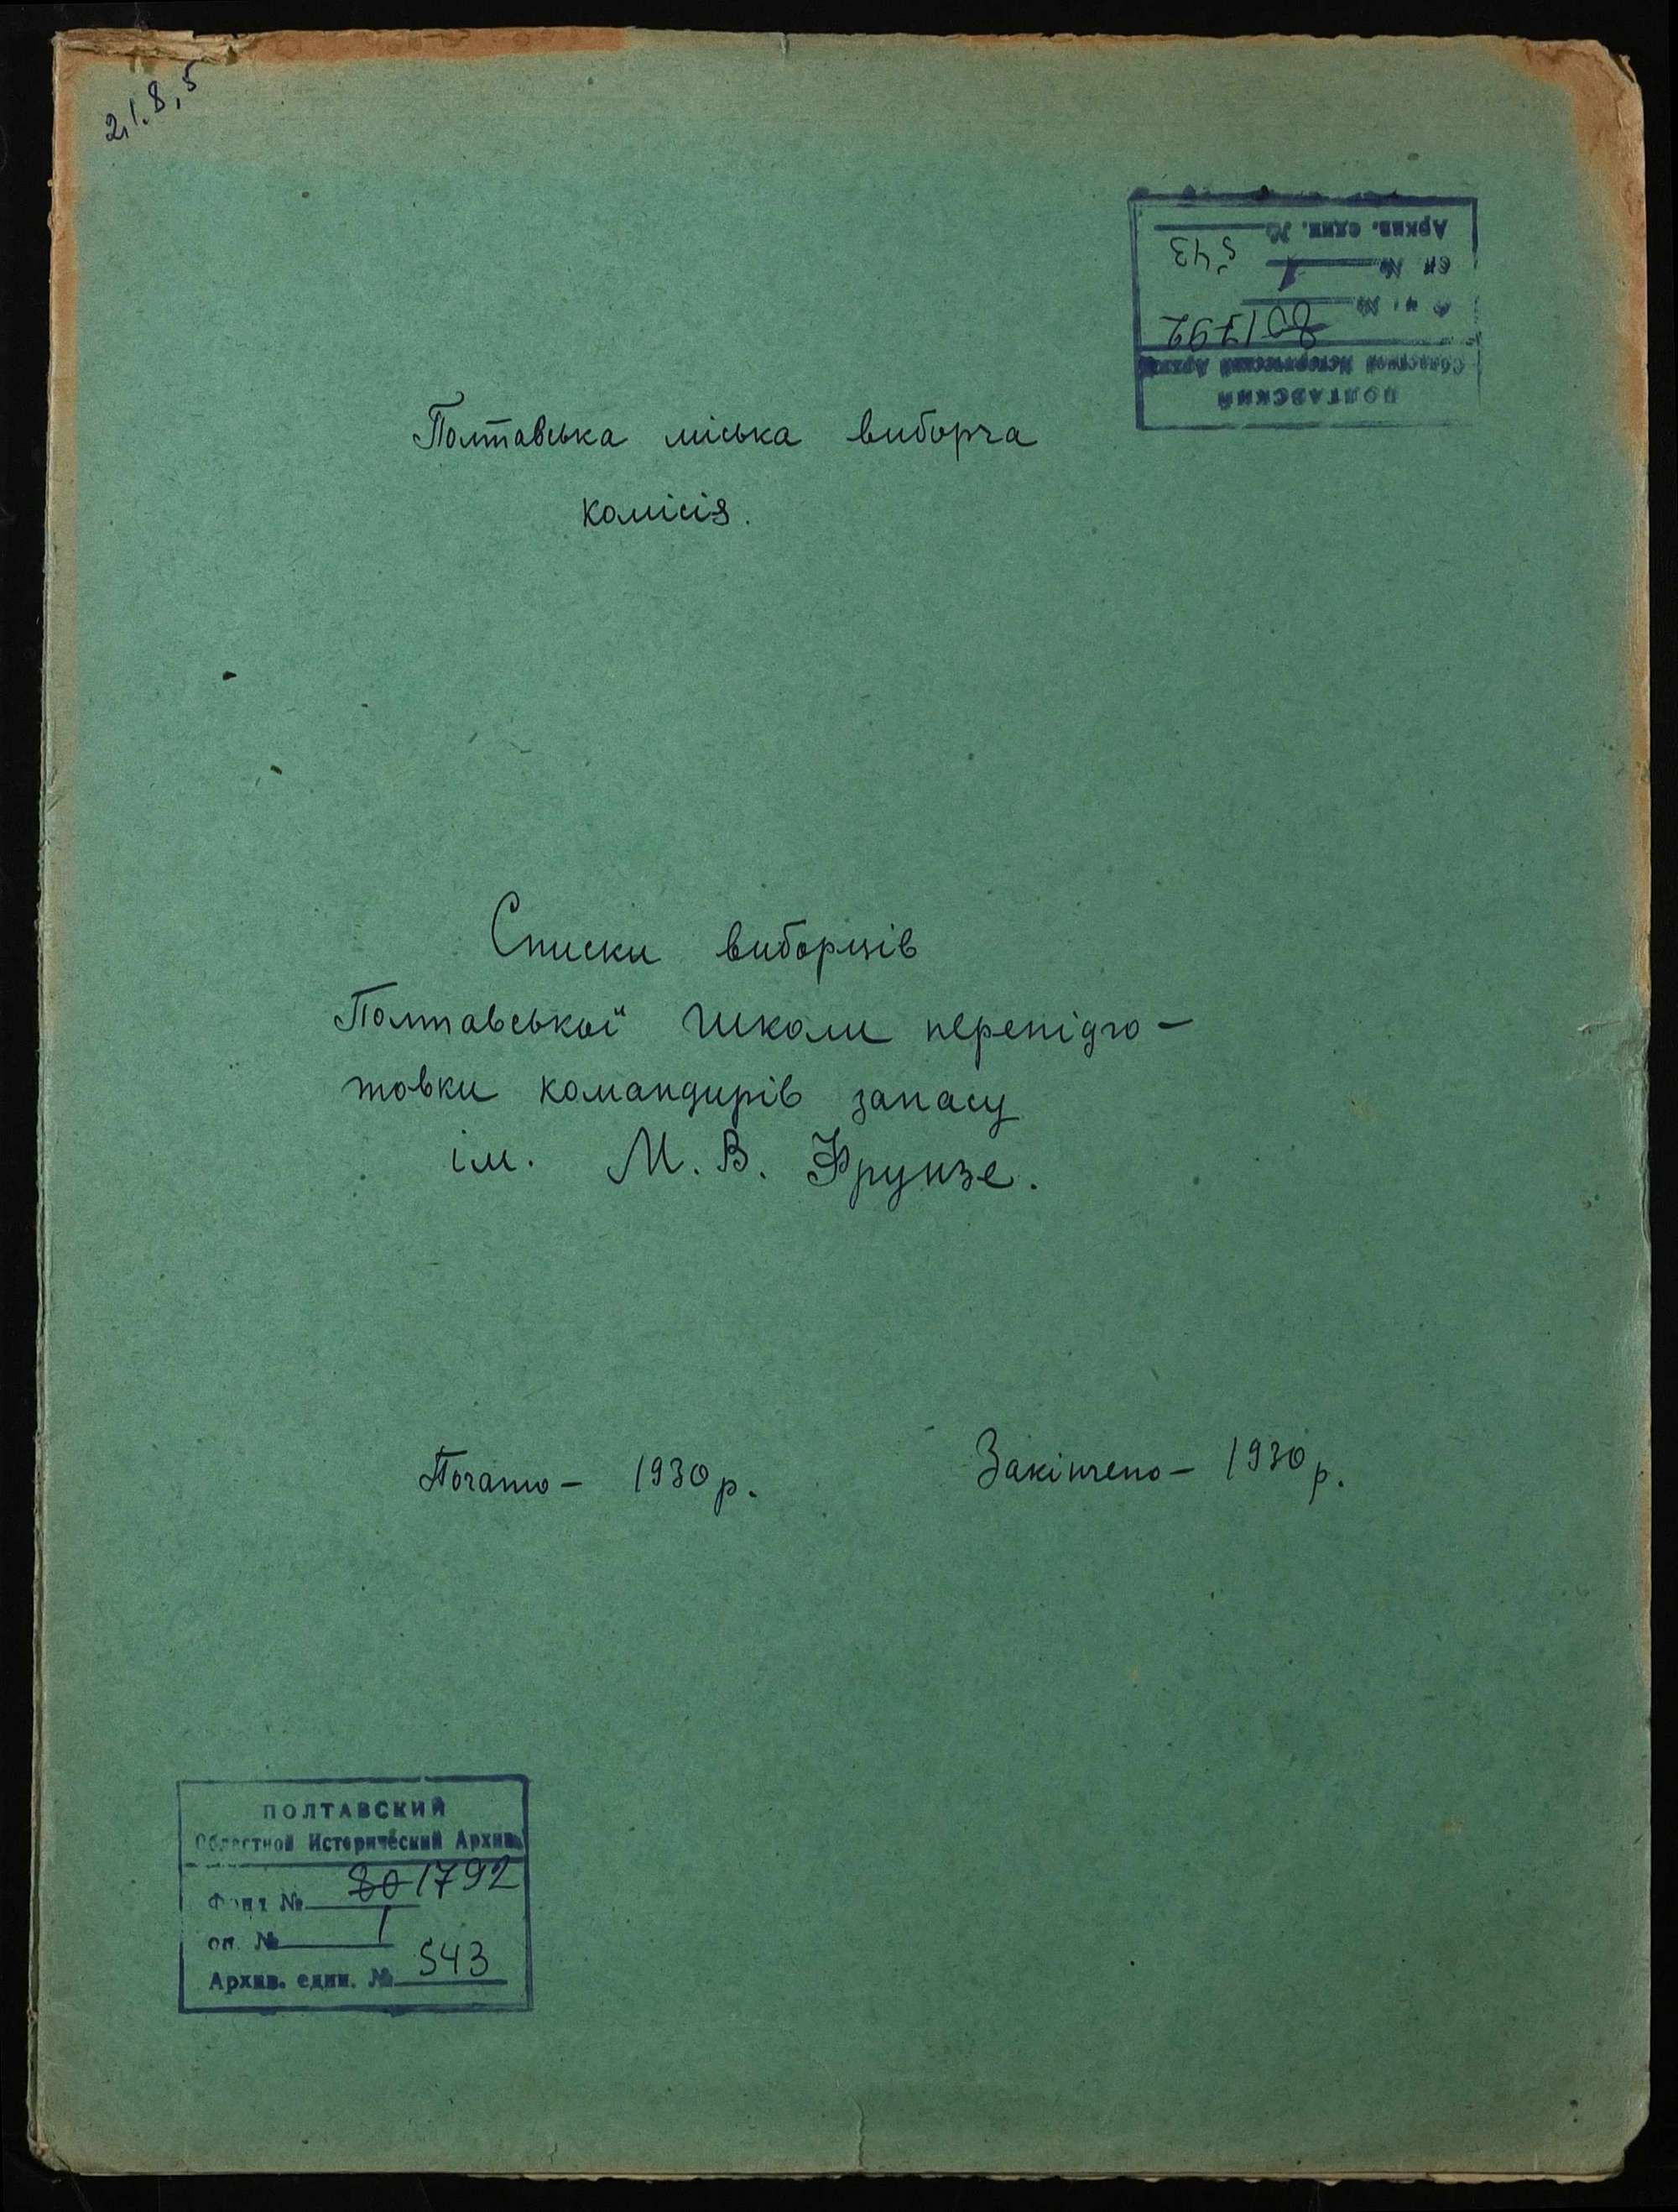 2.1.8,5
ПОЛТАВСКИЙ
Областной Исторический Архив
Фонд № 80 1792
оп № 1
Архив. един. № 543
Полтавська міська виборча
комісія.
Списки виборців
Полтавської школи перепідго-
товки командирів запасу
ім. М. В. Фрунзе.
Почато - 1930 р. Закінчено - 1930 р.
ПОЛТАВСКИЙ
Областной Исторический Архив
Фонд № 80 1792
оп. № 1
Архив. един. № 543